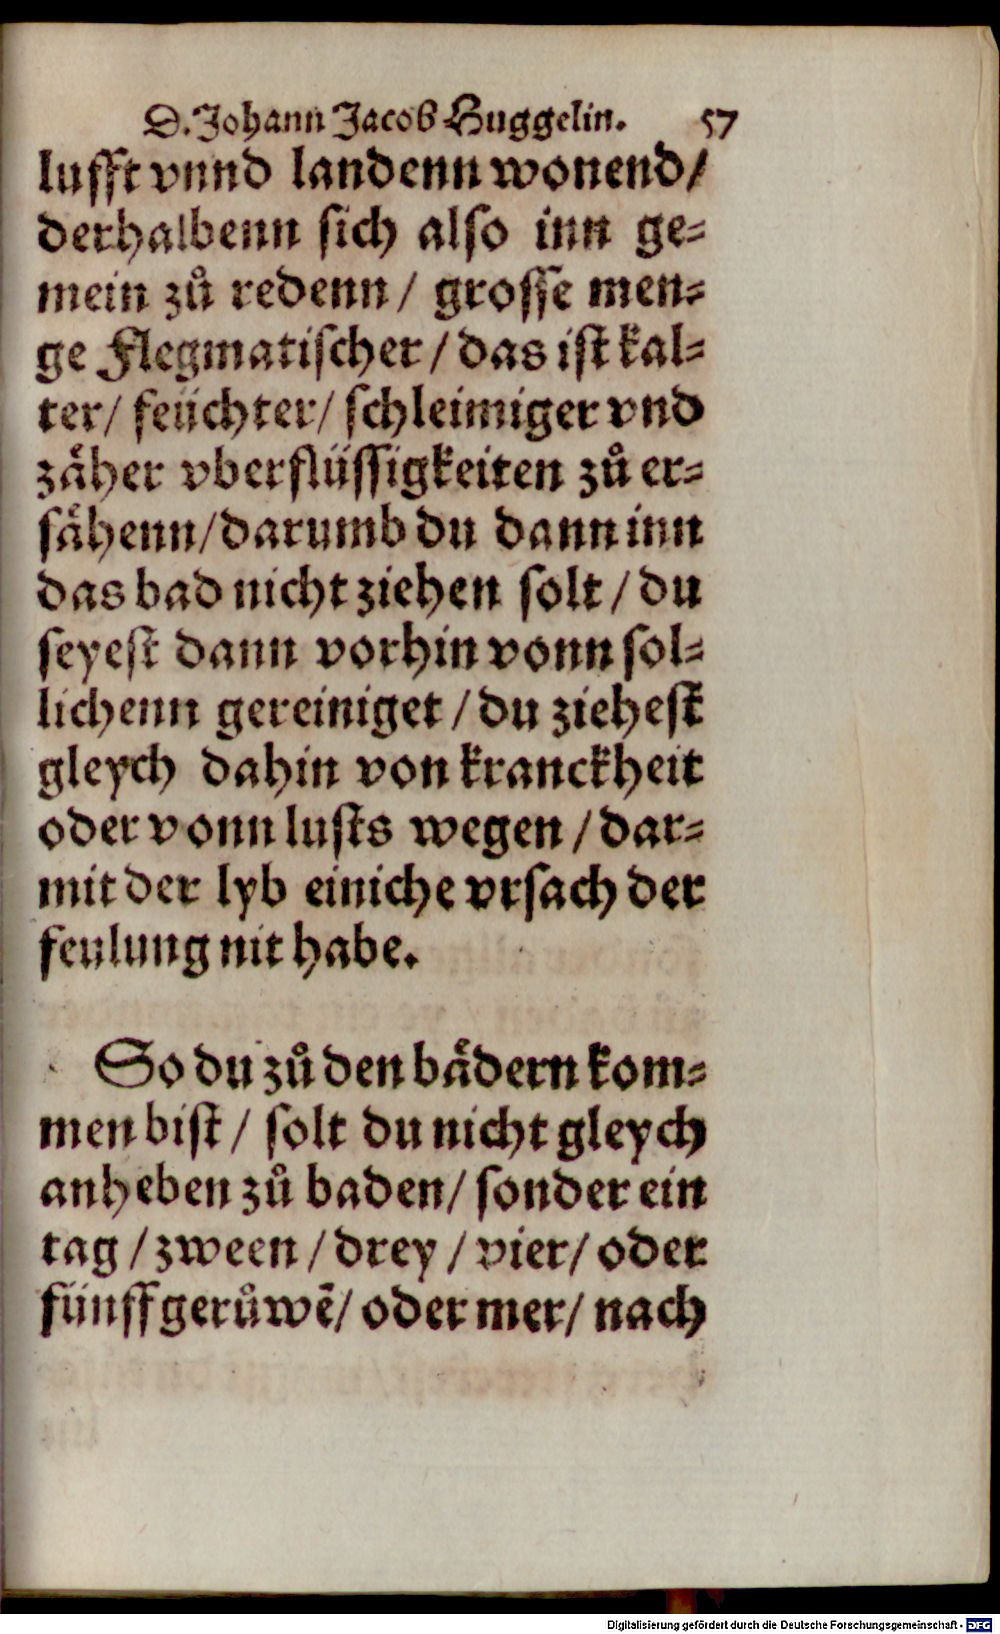 D. Johann Jacob Huggelin. 57
lufft vnnd landenn wonend/
derhalbenn sich also inn ge⸗
mein zů redenn/ grosse men⸗
ge Flegmatischer/ das ist kal⸗
ter/ feüchter/ schleimiger vnd
zåher vberflüssigkeiten zů er⸗
såhenn/ darumb du dann inn
das bad nicht ziehen solt/ du
seyest dann vorhin vonn sol⸗
lichenn gereiniget/ du ziehest
gleych dahin von kranckheit
oder vonn lusts wegen/ dar⸗
mit der lyb einiche vrsach der
feulung nit habe.
So du zů den bådern kom⸗
men bist/ solt du nicht gleych
anheben zů baden/ sonder ein
tag/ zween/ drey/ vier/ oder
fünff gerůwē/ oder mer/ nach
Digitalisierung gefördert durch die Deutsche Forschungsgemeinschaft - DFG